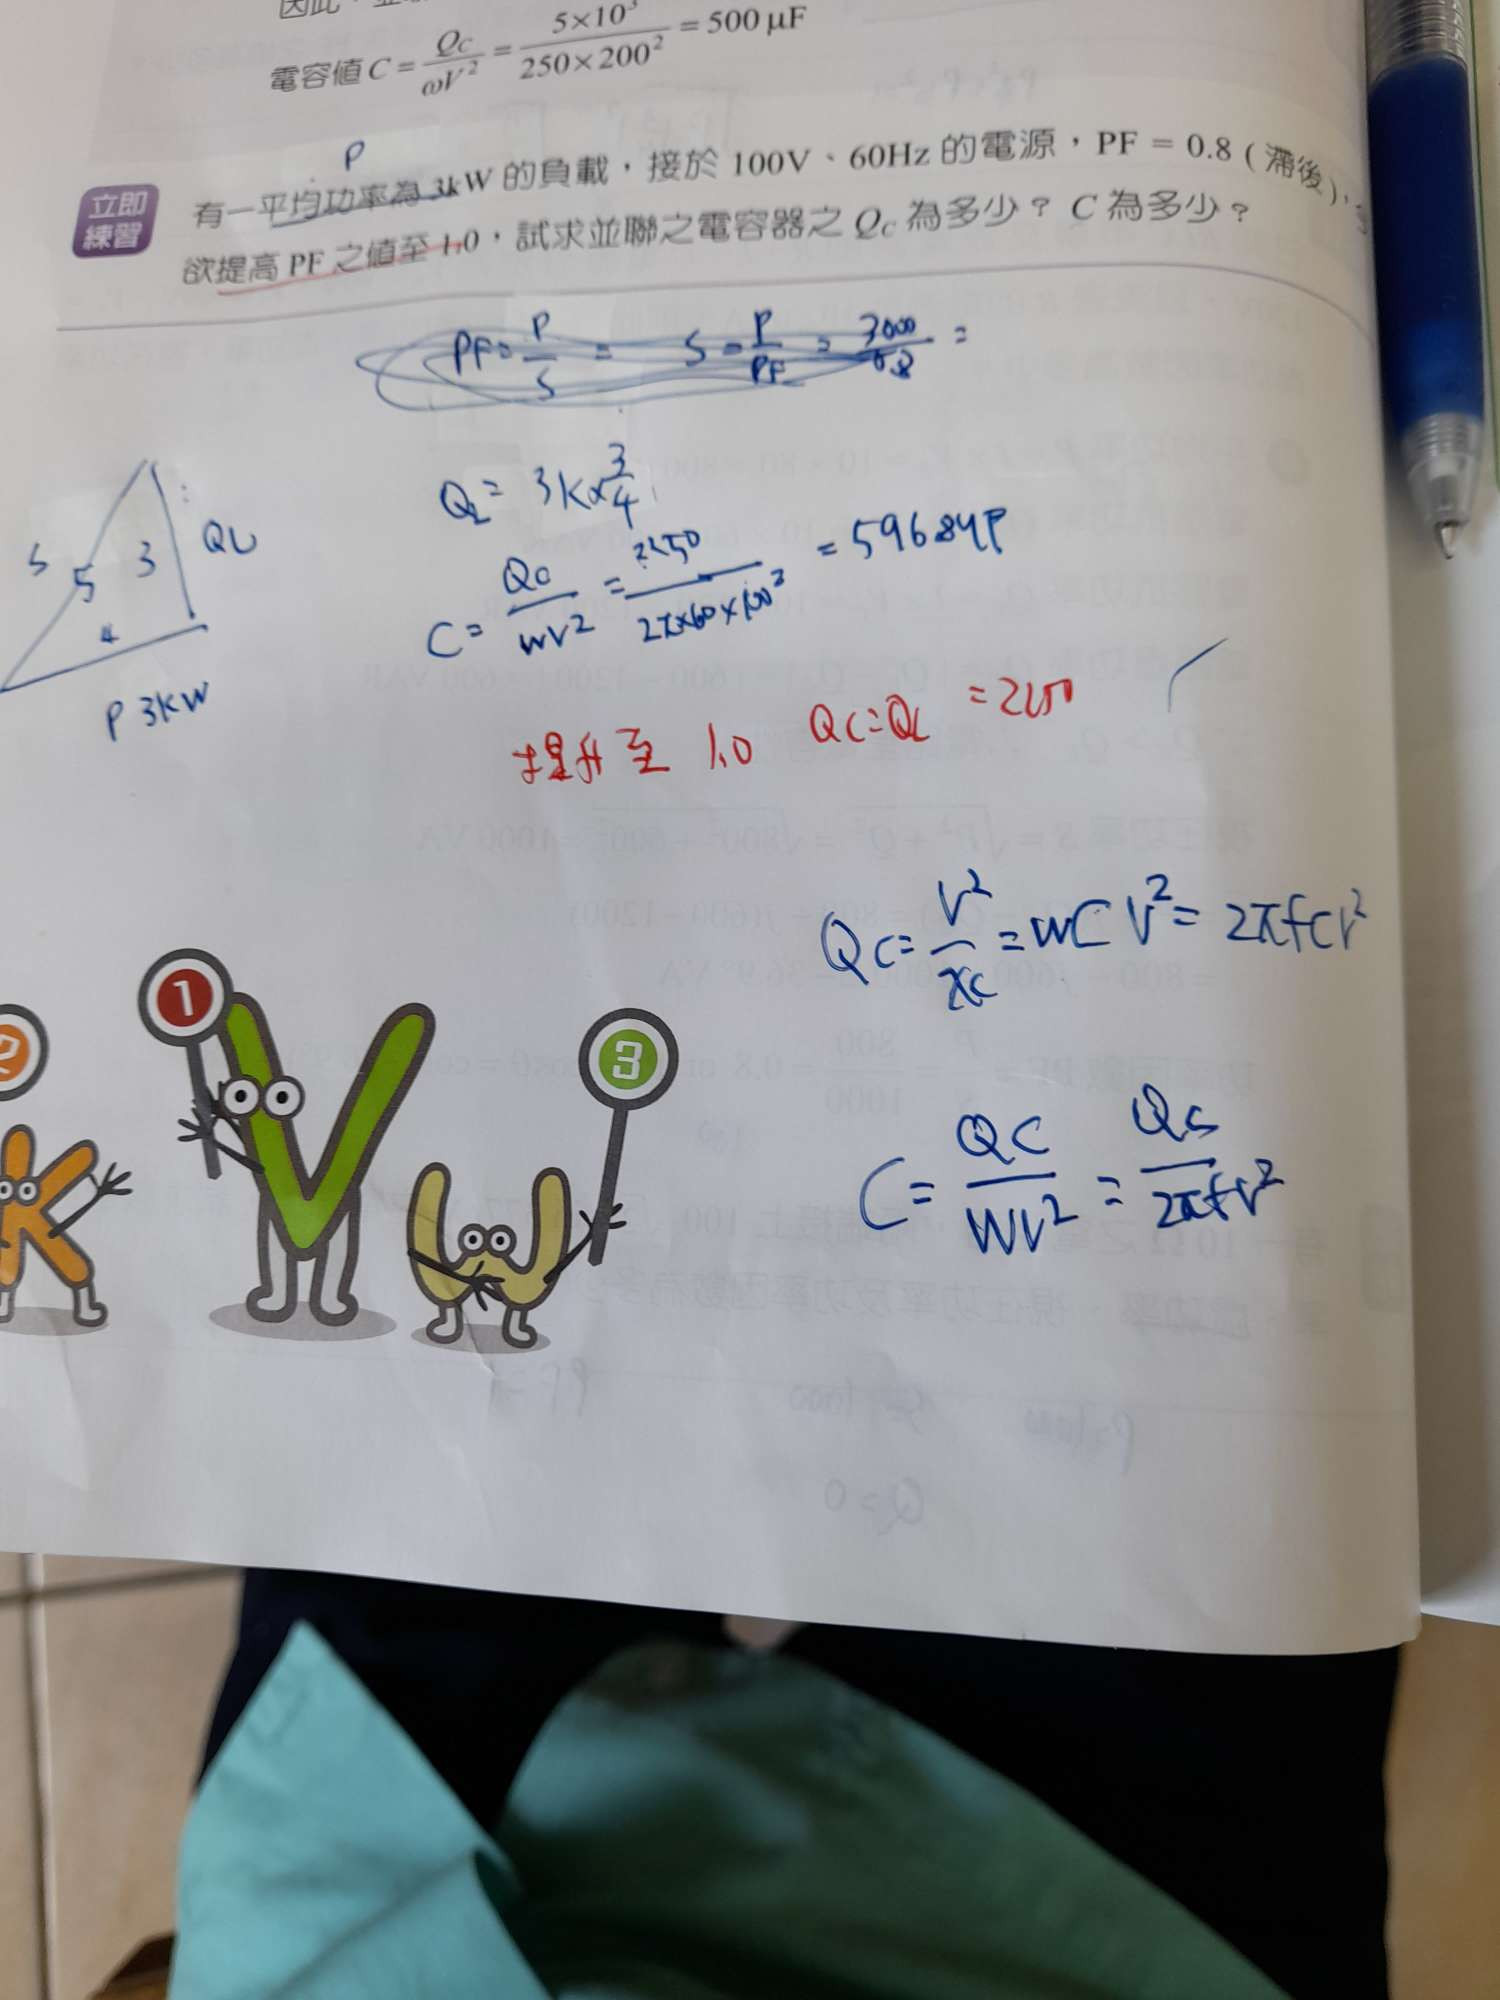 電容值 C = Qc/ωV² = 5×10³/250×200² = 500 μF
P
立即
練習
有一平均功率為 3kW 的負載，接於 100V、60Hz 的電源，PF = 0.8 (滯後)，
欲提高 PF 之值至 1.0，試求並聯之電容器之 Qc 為多少？ C 為多少？
PF = P/S = S = P/PF = 3000/0.8 =
QL = 3k × 3/4
S 5 3 QL
4
P 3kW
C = QC/WV² = 2250/2π×60×100² = 596.84μ
提升至 1.0 QC=QL = 2250
QC = V²/XC = WCV² = 2πfCV²
C = QC/WV² = QC/2πfV²
2
1
3